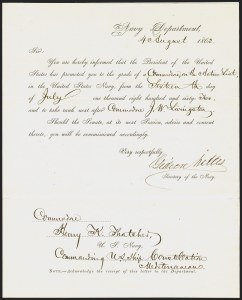 Navy Department,
4 August 1862
Sir:
You are hereby informed that the President of the United
States has promoted you to the grade of a Commodore, on the Active List,
in the United States Navy, from the Sixteenth day
of July one thousand eight hundred and sixty two
and to take rank next after Commodore J. W. Livingston
Should the Senate, at its next Session, advise and consent
thereto, you will be commissioned accordingly.
Very respectfully,
Gideon Welles
Secretary of the Navy.
Commodore
Henry K. Thatcher,
U. S. Navy,
Commanding U.S. Ship Constellation
Mediterranean
NOTE.—Acknowledge the receipt of this letter to the Department.